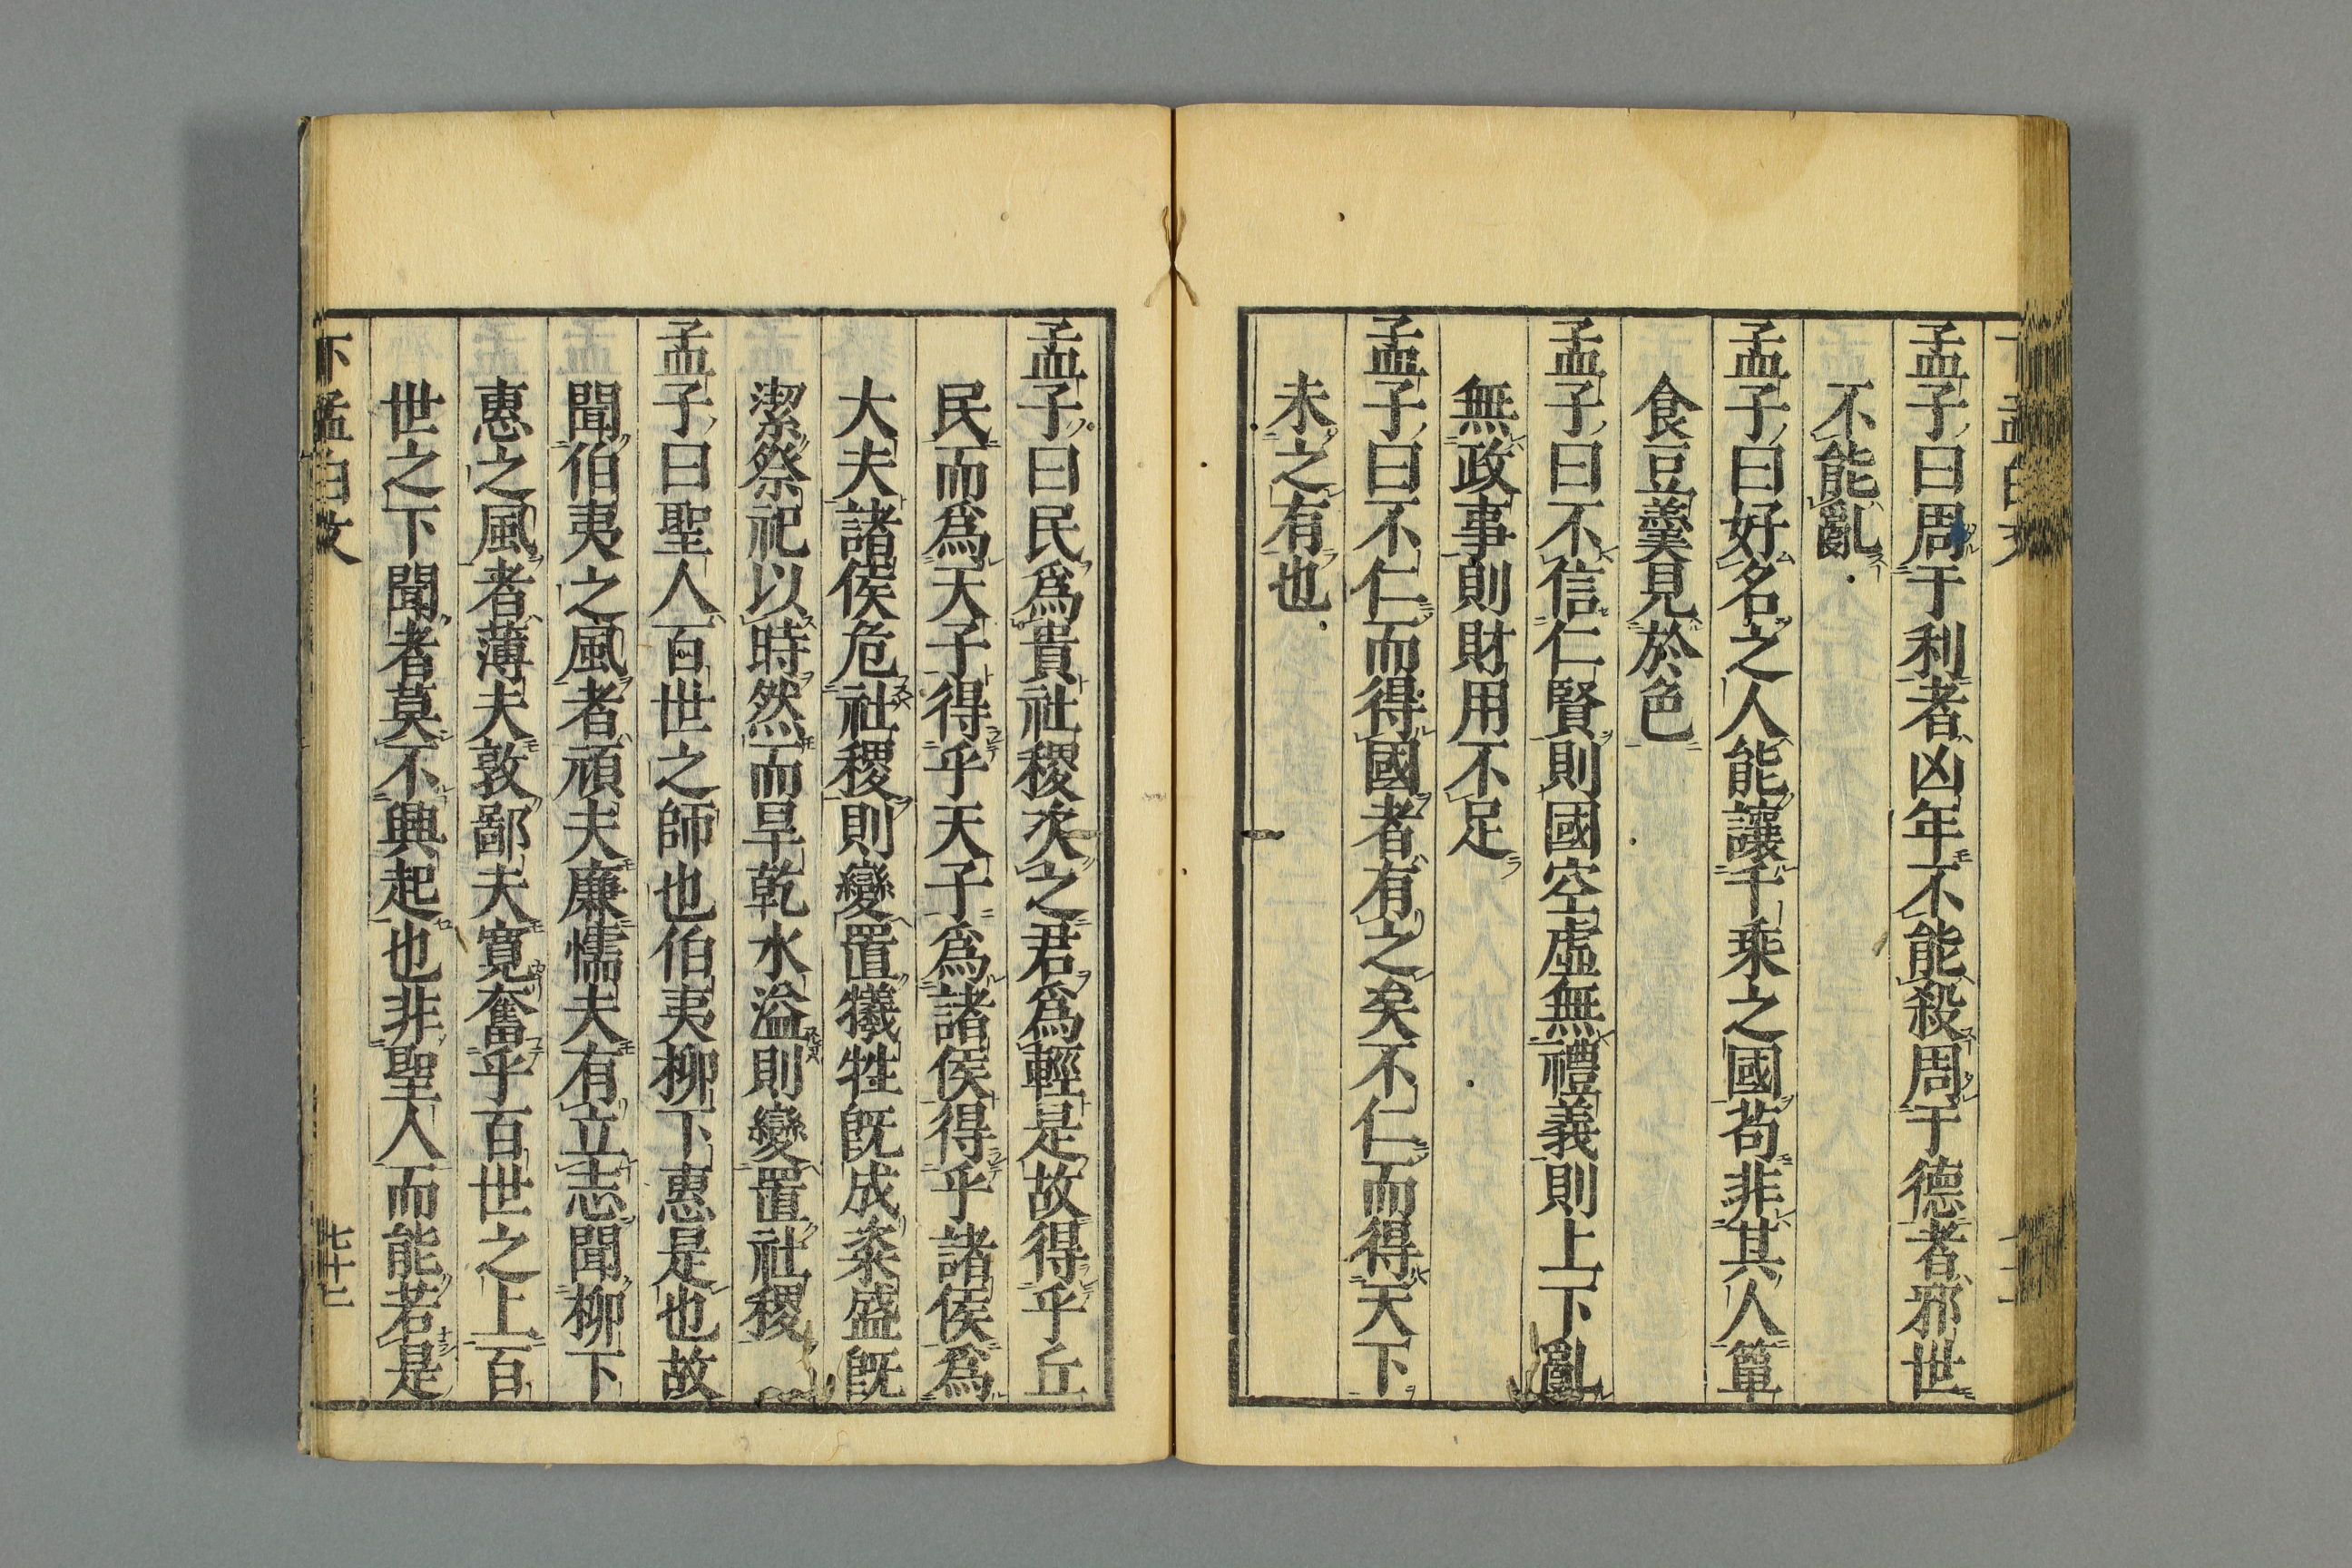 孟子曰周于利者凶年不能殺周于德者邪世
不能亂
孟子曰好名之人能讓千乘之國苟非其人簞
食豆羹見於色
孟子曰不信仁賢則國空虛無禮義則上下亂
無政事則財用不足
孟子曰不仁而得國者有之矣不仁而得天下
未之有也
孟子曰民爲貴社稷次之君爲輕是故得乎丘
民而爲天子得乎天子爲諸侯得乎諸侯爲
大夫諸侯危社稷則變置犧牲旣成粢盛旣
潔祭祀以時然而旱乾水溢則變置社稷
孟子曰聖人百世之師也伯夷柳下惠是也故
聞伯夷之風者頑夫廉懦夫有立志聞柳下
惠之風者薄夫敦鄙夫寬奮乎百世之上百
世之下聞者莫不興起也非聖人而能若是
下孟白文 七十二